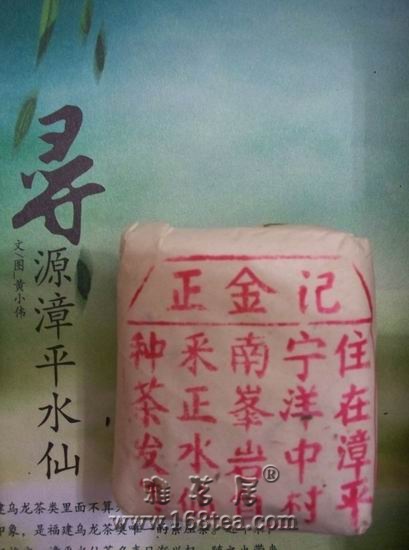 寻
源漳平水仙
文/图_黄小伟
正金记
住在漳平
宁洋中村
南峯岩
采正水仙
种茶发
建乌龙茶类里面不算
印象，是福建乌龙茶类唯一的紧压茶。
雅茗居®
www.168tea.com